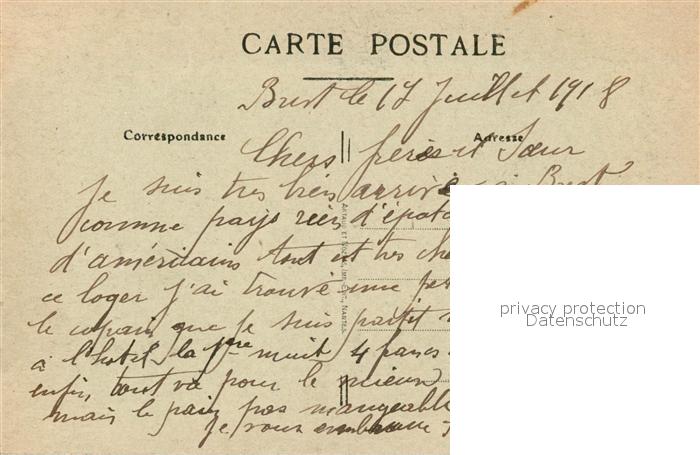 CARTE POSTALE
Brest le 17 Juillet 1918
Correspondance
Adresse
Chers frères et Sœur
Je suis tres bien arrivé à Brest
comme pays rien d'épata
d'américains tout est tres che
ce loger j'ai trouvé une
le copain que je suis partit
à l'hotel la 1ere nuit 4 francs
enfin, tout va pour le mieux
mais le pain pas mangeable
je vous embrasse
ARTAUD ET NOZAIS, IMP.-ÉDIT., NANTES
privacy protection
Datenschutz